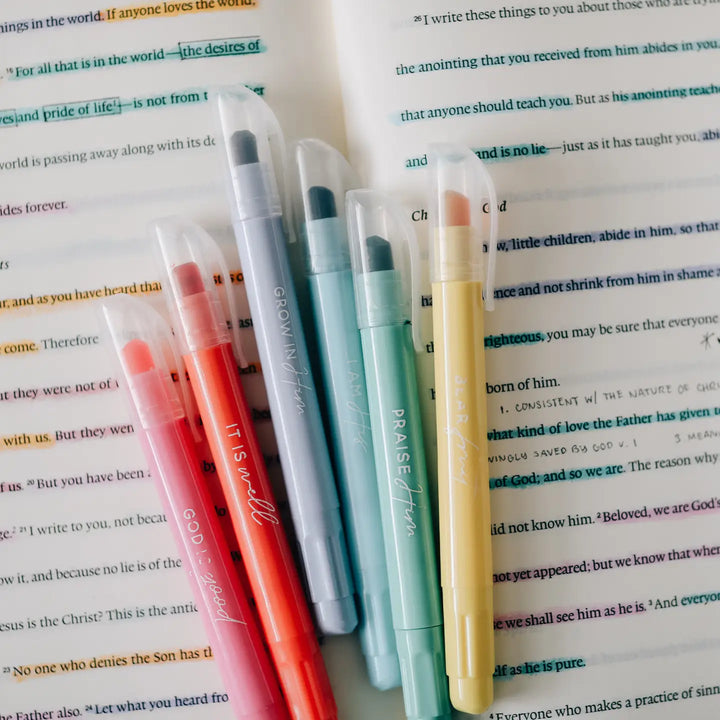 things in the world. If anyone loves the world,
16 For all that is in the world—the desires of
and pride of life—is not from
world is passing away along with its
abides forever.
and as you have heard that
come. Therefore
they were not of
with us. But they were
of us. 20 But you have been
21 I write to you, not
and because no lie is of the
Jesus is the Christ? This is the
23 No one who denies the Son has
the Father also. 24 Let what you heard from
GOD IS good
IT IS well
GROW IN Him
I AM His
PRAISE Him
BEAR
26 I write these things to you about those who are
the anointing that you received from him abides in you,
that anyone should teach you. But as his anointing
and is no lie—just as it has taught you,
God
little children, abide in him, so that
and not shrink from him in shame
righteous, you may be sure that everyone
born of him.
1. CONSISTENT W/ THE NATURE OF
what kind of love the Father has given
SAVED BY GOD V. 1 3
of God; and so we are. The reason why
did not know him. 2 Beloved, we are God's
not yet appeared; but we know that when
we shall see him as he is. 3 And
as he is pure.
4 Everyone who makes a practice of